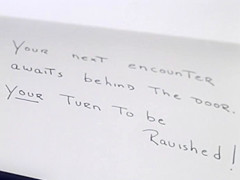 Your next encounter
awaits behind the door.
Your turn to be
Ravished!